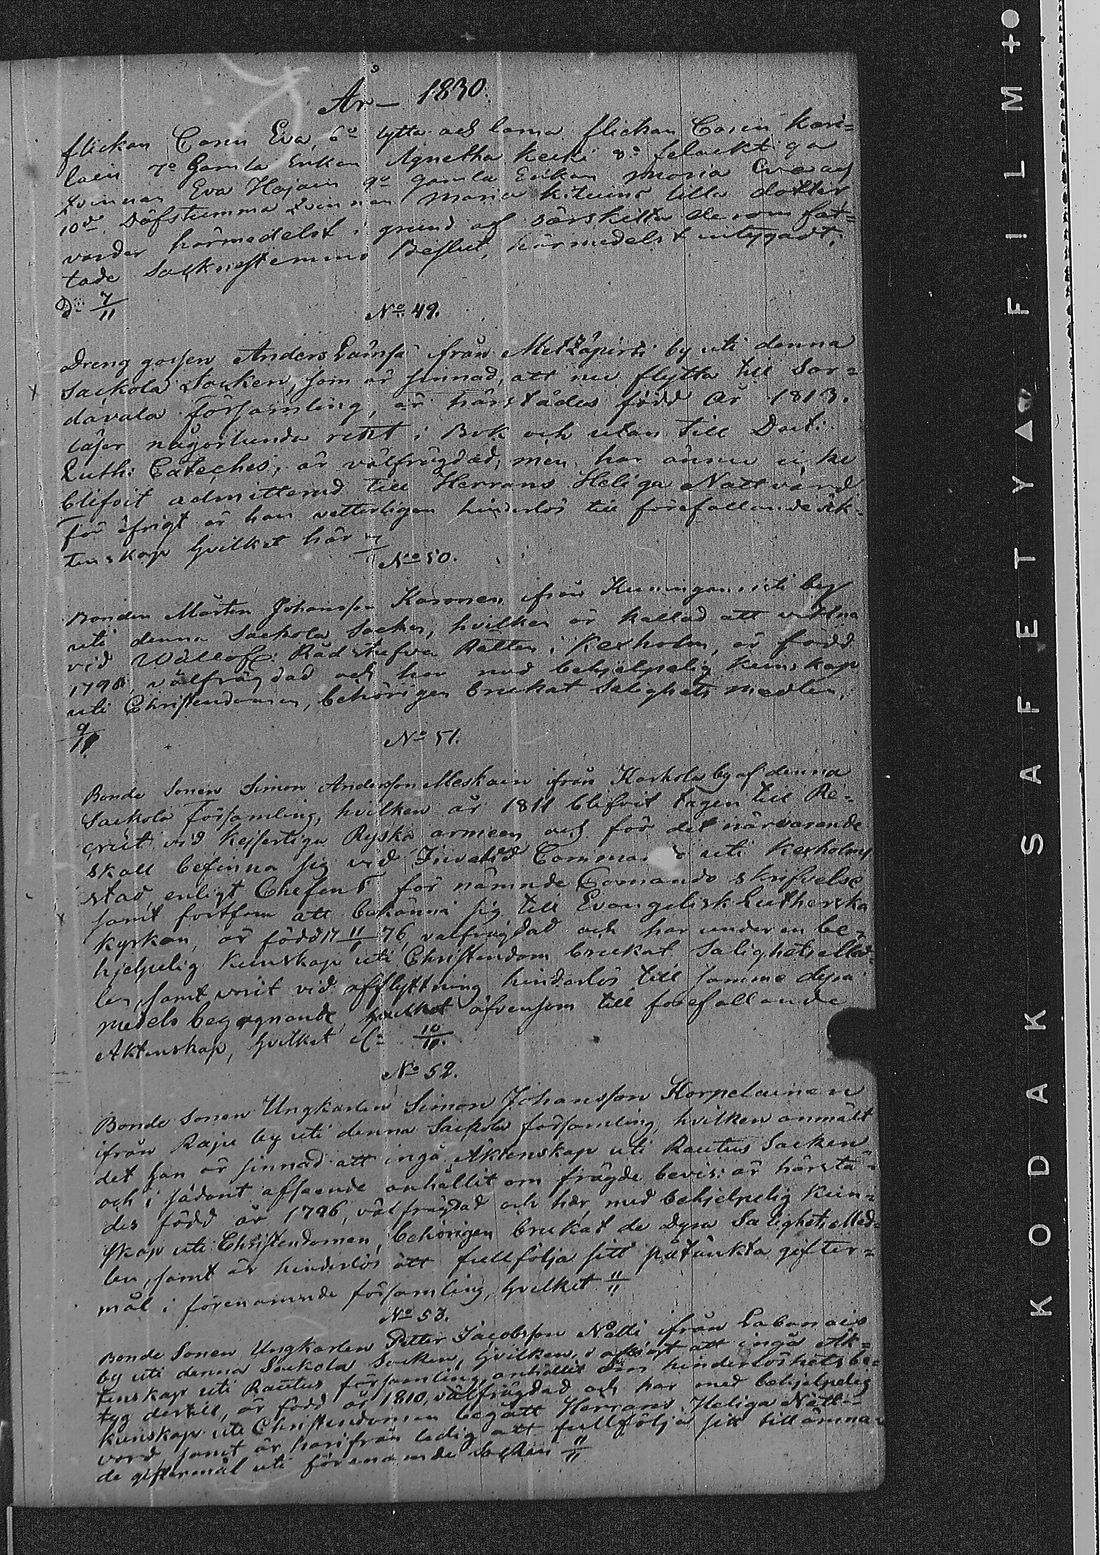 År 1830
flickan Carin Eva, 6o lytta och lama flickan Carin Kari-
lain 7o Gamla Enkan Agnetha Keiki 8o felaktiga
Qvinnan Eva Hajain 9o gamla Enkan Maria Eva och
10de Döfstumma Qvinnan Maria lilla dotter
varder härmedelst i grund af särskilta de som fat-
tade Socknestemmo Beslut, härmedelst intygadt.
Do 7/11
No 49.
Dreng gossen Anders från Metzäpirti by uti denna
Sackola Socken, som är sinnad, att nu flytta till Sor-
davala församling, är härstädes född År 1813.
läser någorlunda rent i Bok och utan till Doct:
Luth: Cateches, är välfrägdad, men har ännu icke
blifvit admitterad till Herrans Heliga Nattvard
För öfrigt är han vetterligen hinderlös till förefallande Äk-
tenskap hvilket här
No 50.
Bonden Mårten Johansson Karonen ifrån by
uti denna Sackola Socken, hvilken är kallad att vittna
vid Wällofl: Rådstufvu Rätten i Kexholm, är född
1790 välfrägdad och har med behjelpelig kunskap
uti Christendomen, behörigen brukat Salighets medlen.
9/11
No 51.
Bonde Sonen Simon Andersson Meskain ifrån Karhola by af denna
Sackola Församling, hvilken år 1811 blifvit tagen till Re-
crut vid Kejserliga Ryska armeen och för det närvarande
skall befinna sig vid Invalid Commando uti Kexholms
stad, enligt Chefens för nämnde Comando skrifvelse
samt fortfom att bekänna sig till Evangelisk Lutherska
kyrkan, är född 17 11/1 76, välfrägdad och har under en be-
hjelpelig kunskap uti Christendom brukat Salighets Med-
len, samt varit vid afflyttning hinderlös till samme dyra
medels begagnande, hvilket äfvensom till förefallande
Äktenskap, hvilket &c 10/11.
No 52.
Bonde Sonen Ungkarlen Simon Johansson Korpelainen
ifrån Raju by uti denna Sackola församling, hvilken anmält
det han är sinnad att ingå Äktenskap uti Rautus Socken
och i sådant afseende anhållit om frägde bevis: är härstä-
des född år 1796, välfrägdad och har med behjelpelig kun-
skap uti Christendomen, behörigen brukat de Dyra Salighets Med-
len, samt är hinderlös att fullfölja sitt påtänkta gifter-
mål i förenämnde församling, hvilket 11/11
No 53.
Bonde Sonen Ungkarlen Petter Jacobsson Nätti, ifrån
by uti denna Sackola Socken, hvilken, i afsigt att ingå Äk-
tenskap uti Rautus församling, anhållit om hinderlöshets be-
tyg dertill, är född år 1810, välfrägdad och har med behjelpelig
kunskap uti Christendomen begått Herrans Heliga Natt-
vard samt är härifrån ledig att fullfölja sitt tillämna-
de giftermål uti förenämnde Socken 11/11
KODAK SAFETY FILM